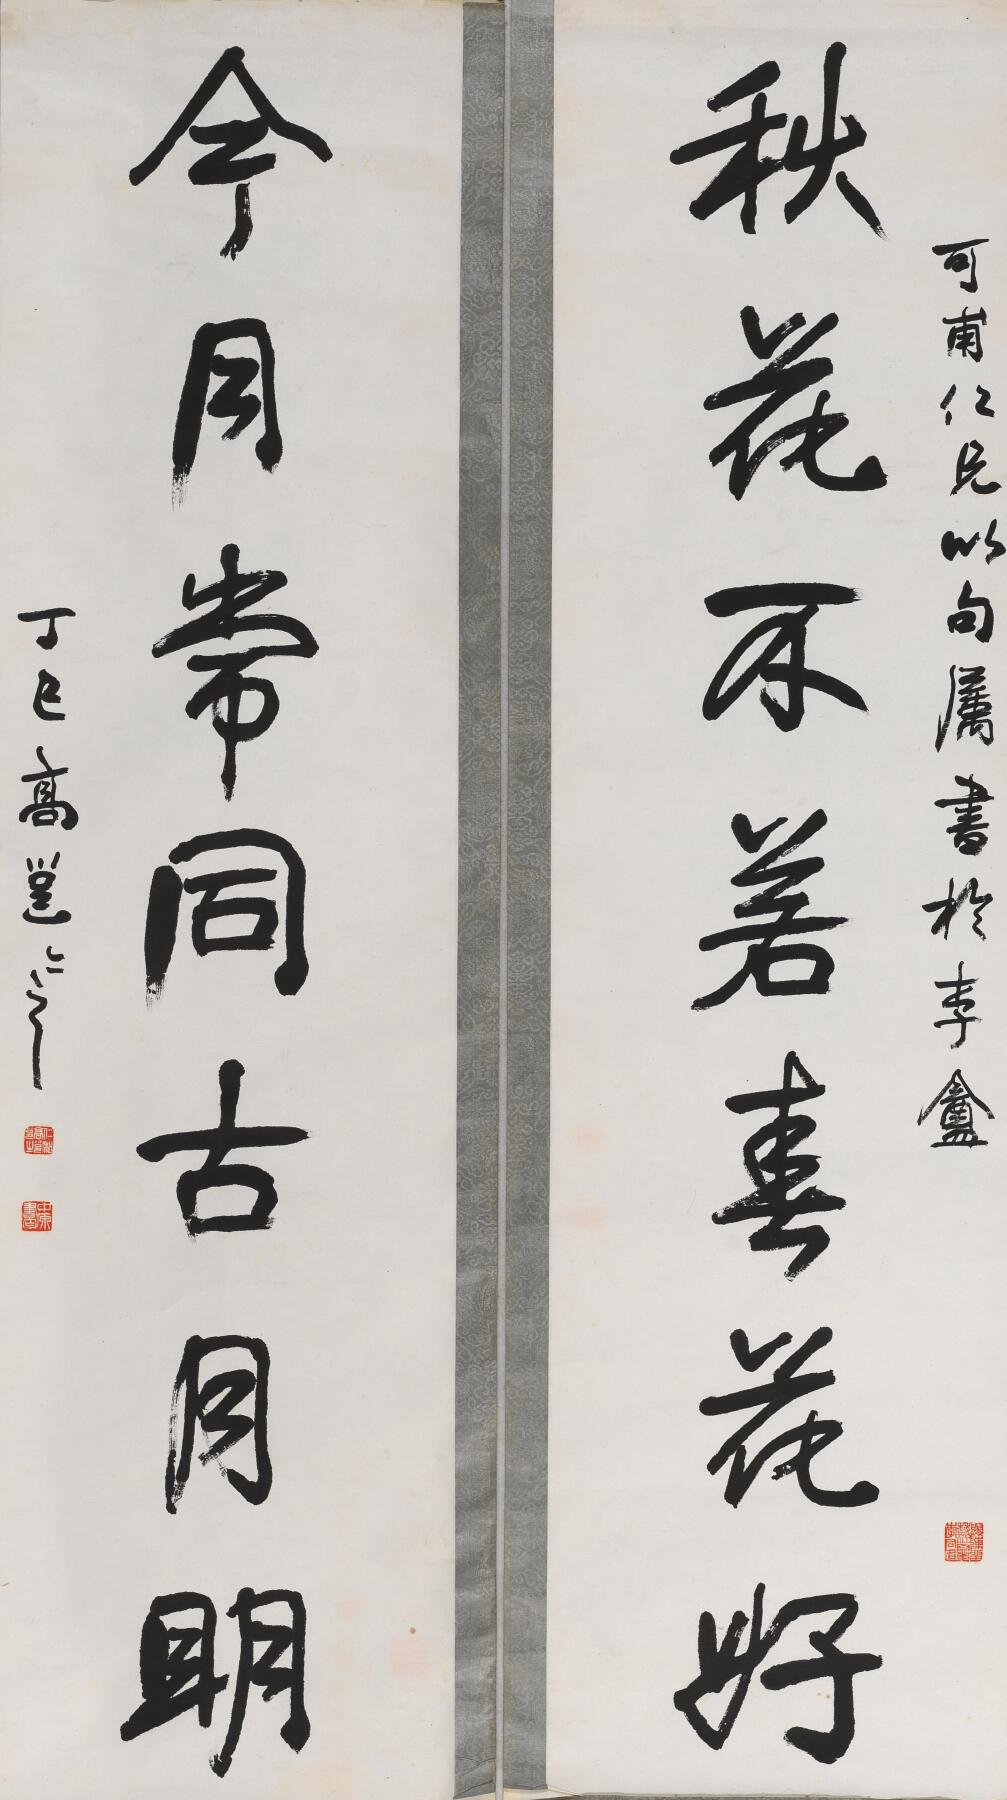 可甫仁兄以句属書於李盦
秋花不若春花好
今月常同古月明
丁巳高邕